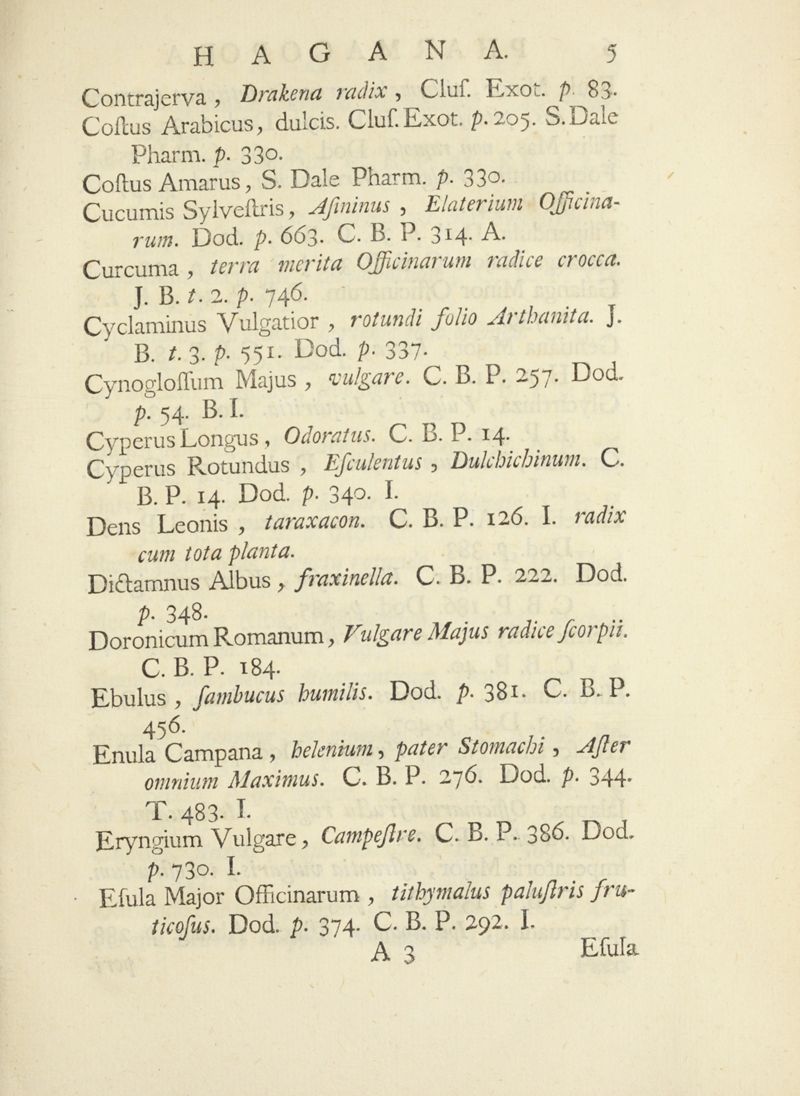 H A G A N A. 5
Contrajerva, Drakena radix, Cluſ. Exot. p. 83.
Coſtus Arabicus, dulcis. Cluſ. Exot. p. 205. S. Dale
Pharm. p. 330.
Coſtus Amarus, S. Dale Pharm. p. 330.
Cucumis Sylveſtris, Aſininus, Elaterium Officina-
rum. Dod. p. 663. C. B. P. 314. A.
Curcuma, terra merita Officinarum radice crocea.
J. B. t. 2. p. 746.
Cyclaminus Vulgatior, rotundi folio Arthanita. J.
B. t. 3. p. 551. Dod. p. 337.
Cynogloſſum Majus, vulgare. C. B. P. 257. Dod.
p. 54. B. I.
Cyperus Longus, Odoratus. C. B. P. 14.
Cyperus Rotundus, Eſculentus, Dulchichinum. C.
B. P. 14. Dod. p. 340. I.
Dens Leonis, taraxacon. C. B. P. 126. I. radix
cum tota planta.
Dictamnus Albus, fraxinella. C. B. P. 222. Dod.
p. 348.
Doronicum Romanum, Vulgare Majus radice ſcorpii.
C. B. P. 184.
Ebulus, ſambucus humilis. Dod. p. 381. C. B. P.
456.
Enula Campana, helenium, pater Stomachi, Aſter
omnium Maximus. C. B. P. 276. Dod. p. 344.
T. 483. I.
Eryngium Vulgare, Campeſtre. C. B. P. 386. Dod.
p. 730. I.
Eſula Major Officinarum, tithymalus paluſtris fru-
ticoſus. Dod. p. 374. C. B. P. 292. I.
A 3 Eſula